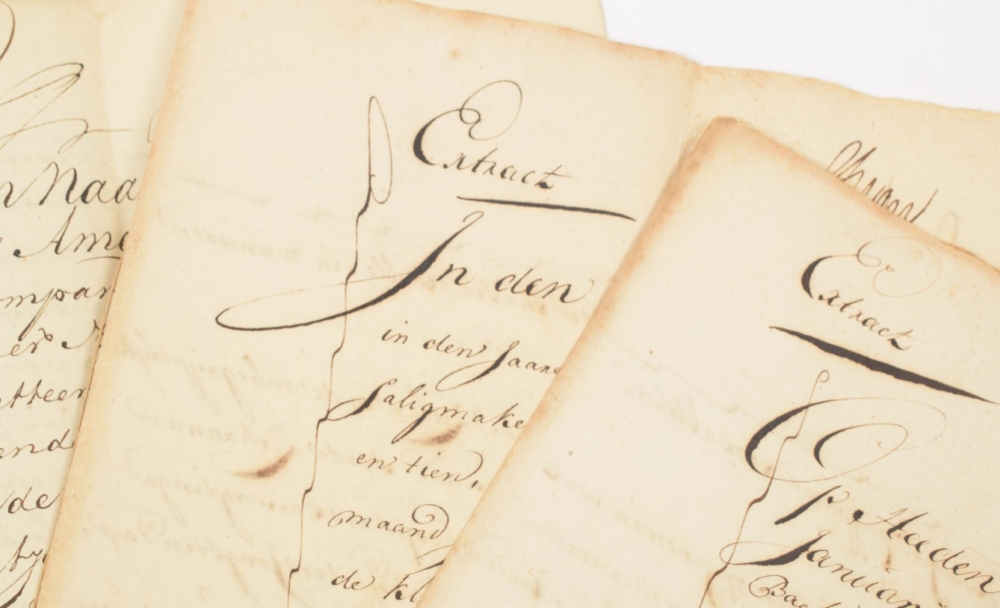 Naa
Ame
mpar
er
tteer
end
de
Extract
In den
in den Jaare
Saligmake
en tien,
maand
de kl
Extract
Op Heeden
Januari